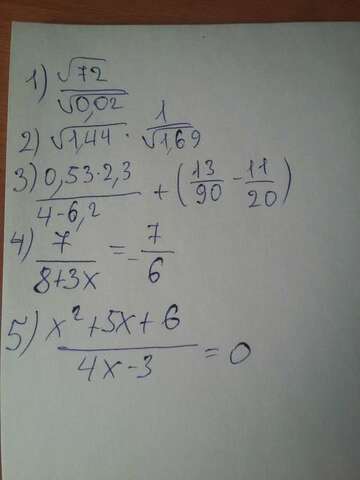 1) √72 / √0,02
2) √1,44 · 1 / √1,69
3) 0,53·2,3 / 4-6,2 + (13/90 - 11/20)
4) 7 / 8+3x = -7/6
5) x² + 5x + 6 / 4x-3 = 0